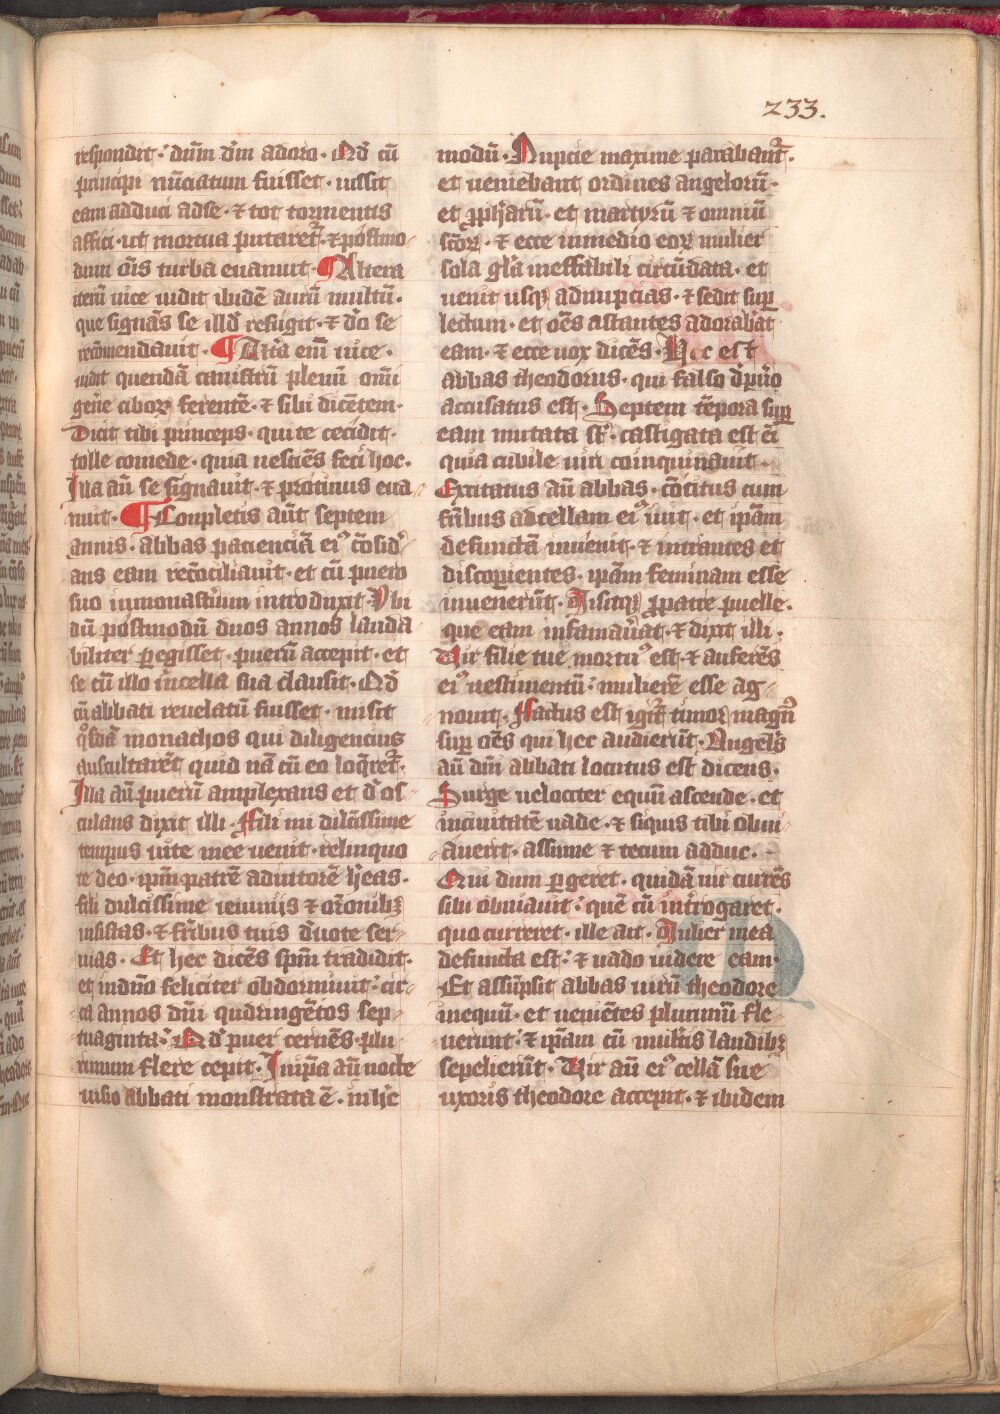 233.
respondit · dūm dm̄ adoro · Qd̄ cū
principi nūciatum fuisset · iussit
eam adduci ad se · ⁊ tot tormentis
affici · ut mortua putaret̄ · ⁊ postmo-
dum oīs turba euanuit · ¶ Altera
iterū uice uidit ibidē aurū multū ·
que signās se illd̄ refugit · ⁊ dō se
recōmendauit · ¶ Altā em̄ uice ·
uidit quendā canistrū plenū omī
genē ciboꝝ ferentē · ⁊ sibi dicētem ·
Dicit tibi princeps · qui te cecidit ·
tolle comede · quia nesciēs feci hoc ·
Illa aū se signauit · ⁊ protinus eua-
nuit · ¶ Conpletis aūt septem
annis · abbas pacienciā ei᷒ cōsid̾-
ans eam recōciliauit · et cū puero
suo in monast̾ium introduxit · Vbi
dū postmodū duos annos lauda-
biliter ꝑegisset · puerū accepit · et
se cū illo in cella sua clausit · Qd̄
cū abbati reuelatū fuisset · misit
qͦsdā monachos qui diligencius
auscultarēt quid nā cū eo loq̄ret̄ ·
Illa aū puerū amplexans et d̾os-
culans dixit illi · Fili mi dilc̄issime
tempus uite mee uenit · relinquo
te deo · ipm̄ patrē adiutorē h̾eas ·
fili dulcissime ieiunijs ⁊ orōnibꝫ
insistas · ⁊ fr̄ibus tuis d̾uote ser-
uias · Et hec dicēs spm̄ tradidit ·
et in dn̄o feliciter obdormiuit · cir-
ca annos dn̄i quadringētos sep-
tuaginta · Qd̄ puer cernēs · plu-
rimum flere cepit · In ip̄a aū nocte
uisio abbati monstrata ē · in hc̄
modū · Nupcie maxime parabant̾ ·
et ueniebant ordines angelorū ·
et ꝓph̾arū · et martyrū ⁊ omniū
sc̄oꝝ · ⁊ ecce in medio eoꝝ mulier
sola glā ineffabili circūdata · et
uenit usqꝫ ad nupcias · ⁊ sedit suꝑ
lectum · et oēs astantes adorab̾āt
eam · ⁊ ecce uox dicēs · Hec est
abbas theodorus · qui falso d̾ pu̾o
accusatus est · Septem tēpora suꝑ
eam mutata st̄ · castigata est ēi
quia cubile uiri coinquinauit ·
Excitatus aū abbas · cōcitus cum
fr̄ibus ad cellam ei᷒ iuit · et ipam̄
defunctā inuenit · ⁊ intrantes et
discoꝑientes · ipām feminam esse
inuenerūt · Misitqꝫ ꝓ patre puelle ·
que eam infamau̾at · ⁊ dixit illi ·
Vir filie tue mortu᷒ est · ⁊ auferēs
ei᷒ uestimentū · mulierē esse ag-
nouit · Factus est igit̾ timor magn᷒
suꝑ oēs qui hec audierūt · Angel᷒
aū dn̄i abbati locutus est dicens ·
Surge uelociter equū ascende · et
in ciuitatē uade · ⁊ siquis tibi obui-
auerit · assume ⁊ tecum adduc · -
Qui dum ꝑgeret · quidā uir currēs
sibi obuiauit · quē cū int̾rogaret ·
quo curreret · ille ait · Mulier mea
defuncta est · ⁊ uado uidere eam ·
Et assūpsit abbas uirū theodore
in equū · et ueniētes plurimū fle-
uerunt · ⁊ ipām cū multis laudibꝫ
sepelierūt · Vir aū ei᷒ cellā sue
uxoris theodore accepit · ⁊ ibidem